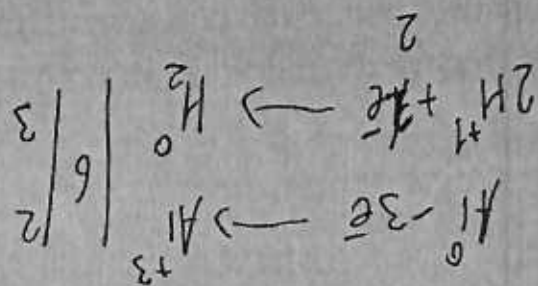 Al⁰ - 3ē → Al⁺³ | 6 | 2
2H⁺¹ + 2ē → H₂⁰ | 3